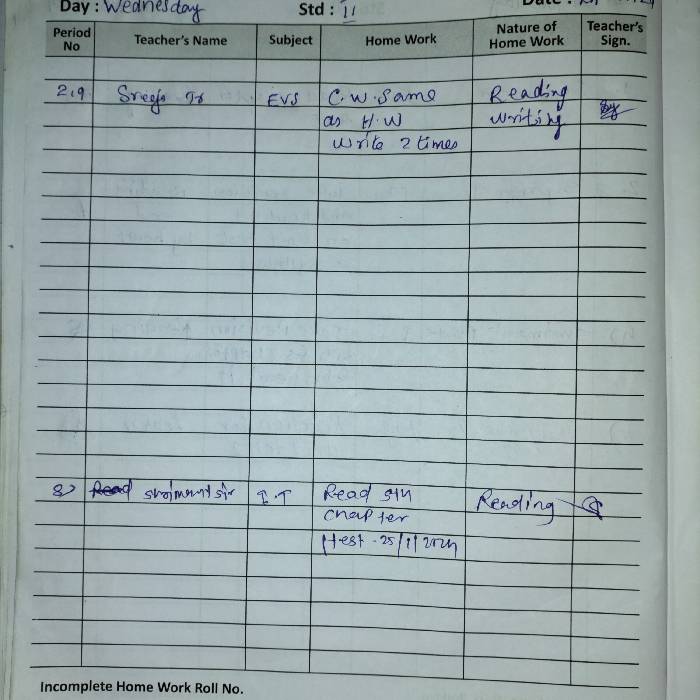 Day : Wednesday Std : II Date :
Period No Teacher's Name Subject Home Work Nature of Home Work Teacher's Sign.
2,9 Sreeja Tr EVS C.W. Same Reading
as H.W Writing
Write 2 times
8) sir I.T Read 5th Reading
chapter
test - 25/1/2024
Incomplete Home Work Roll No.